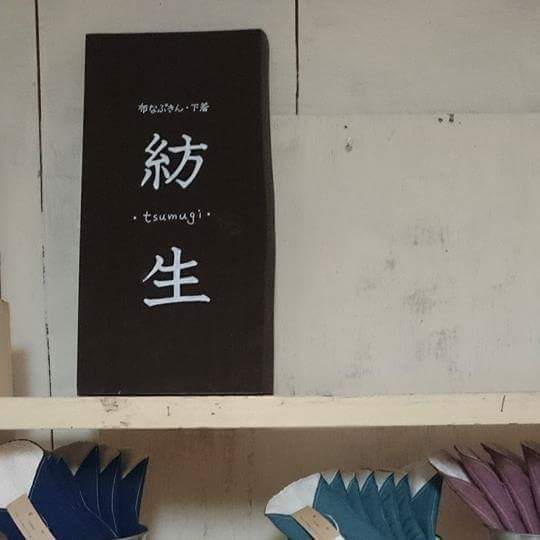 布なぷきん・下着
紡
・tsumugi・
生